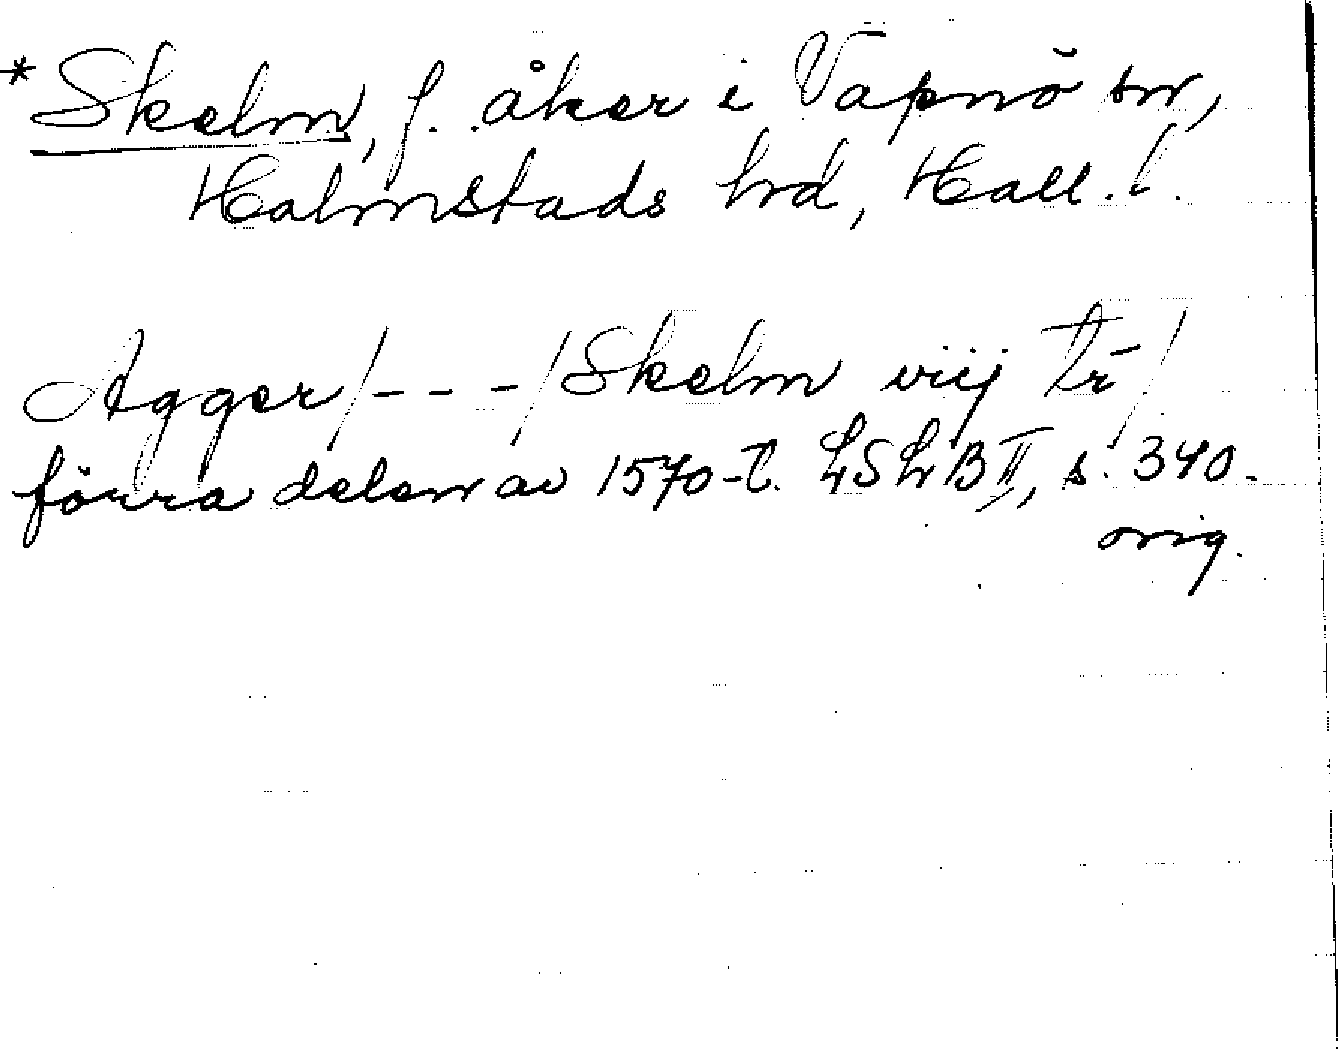 *Skelm, f. åker i Vapnö sn,
Halmstads hrd, Hall. l.
Agger/---/Skelm viij tr̄/
förra delen av 1570-t. LSLB II, s. 340.
orig.